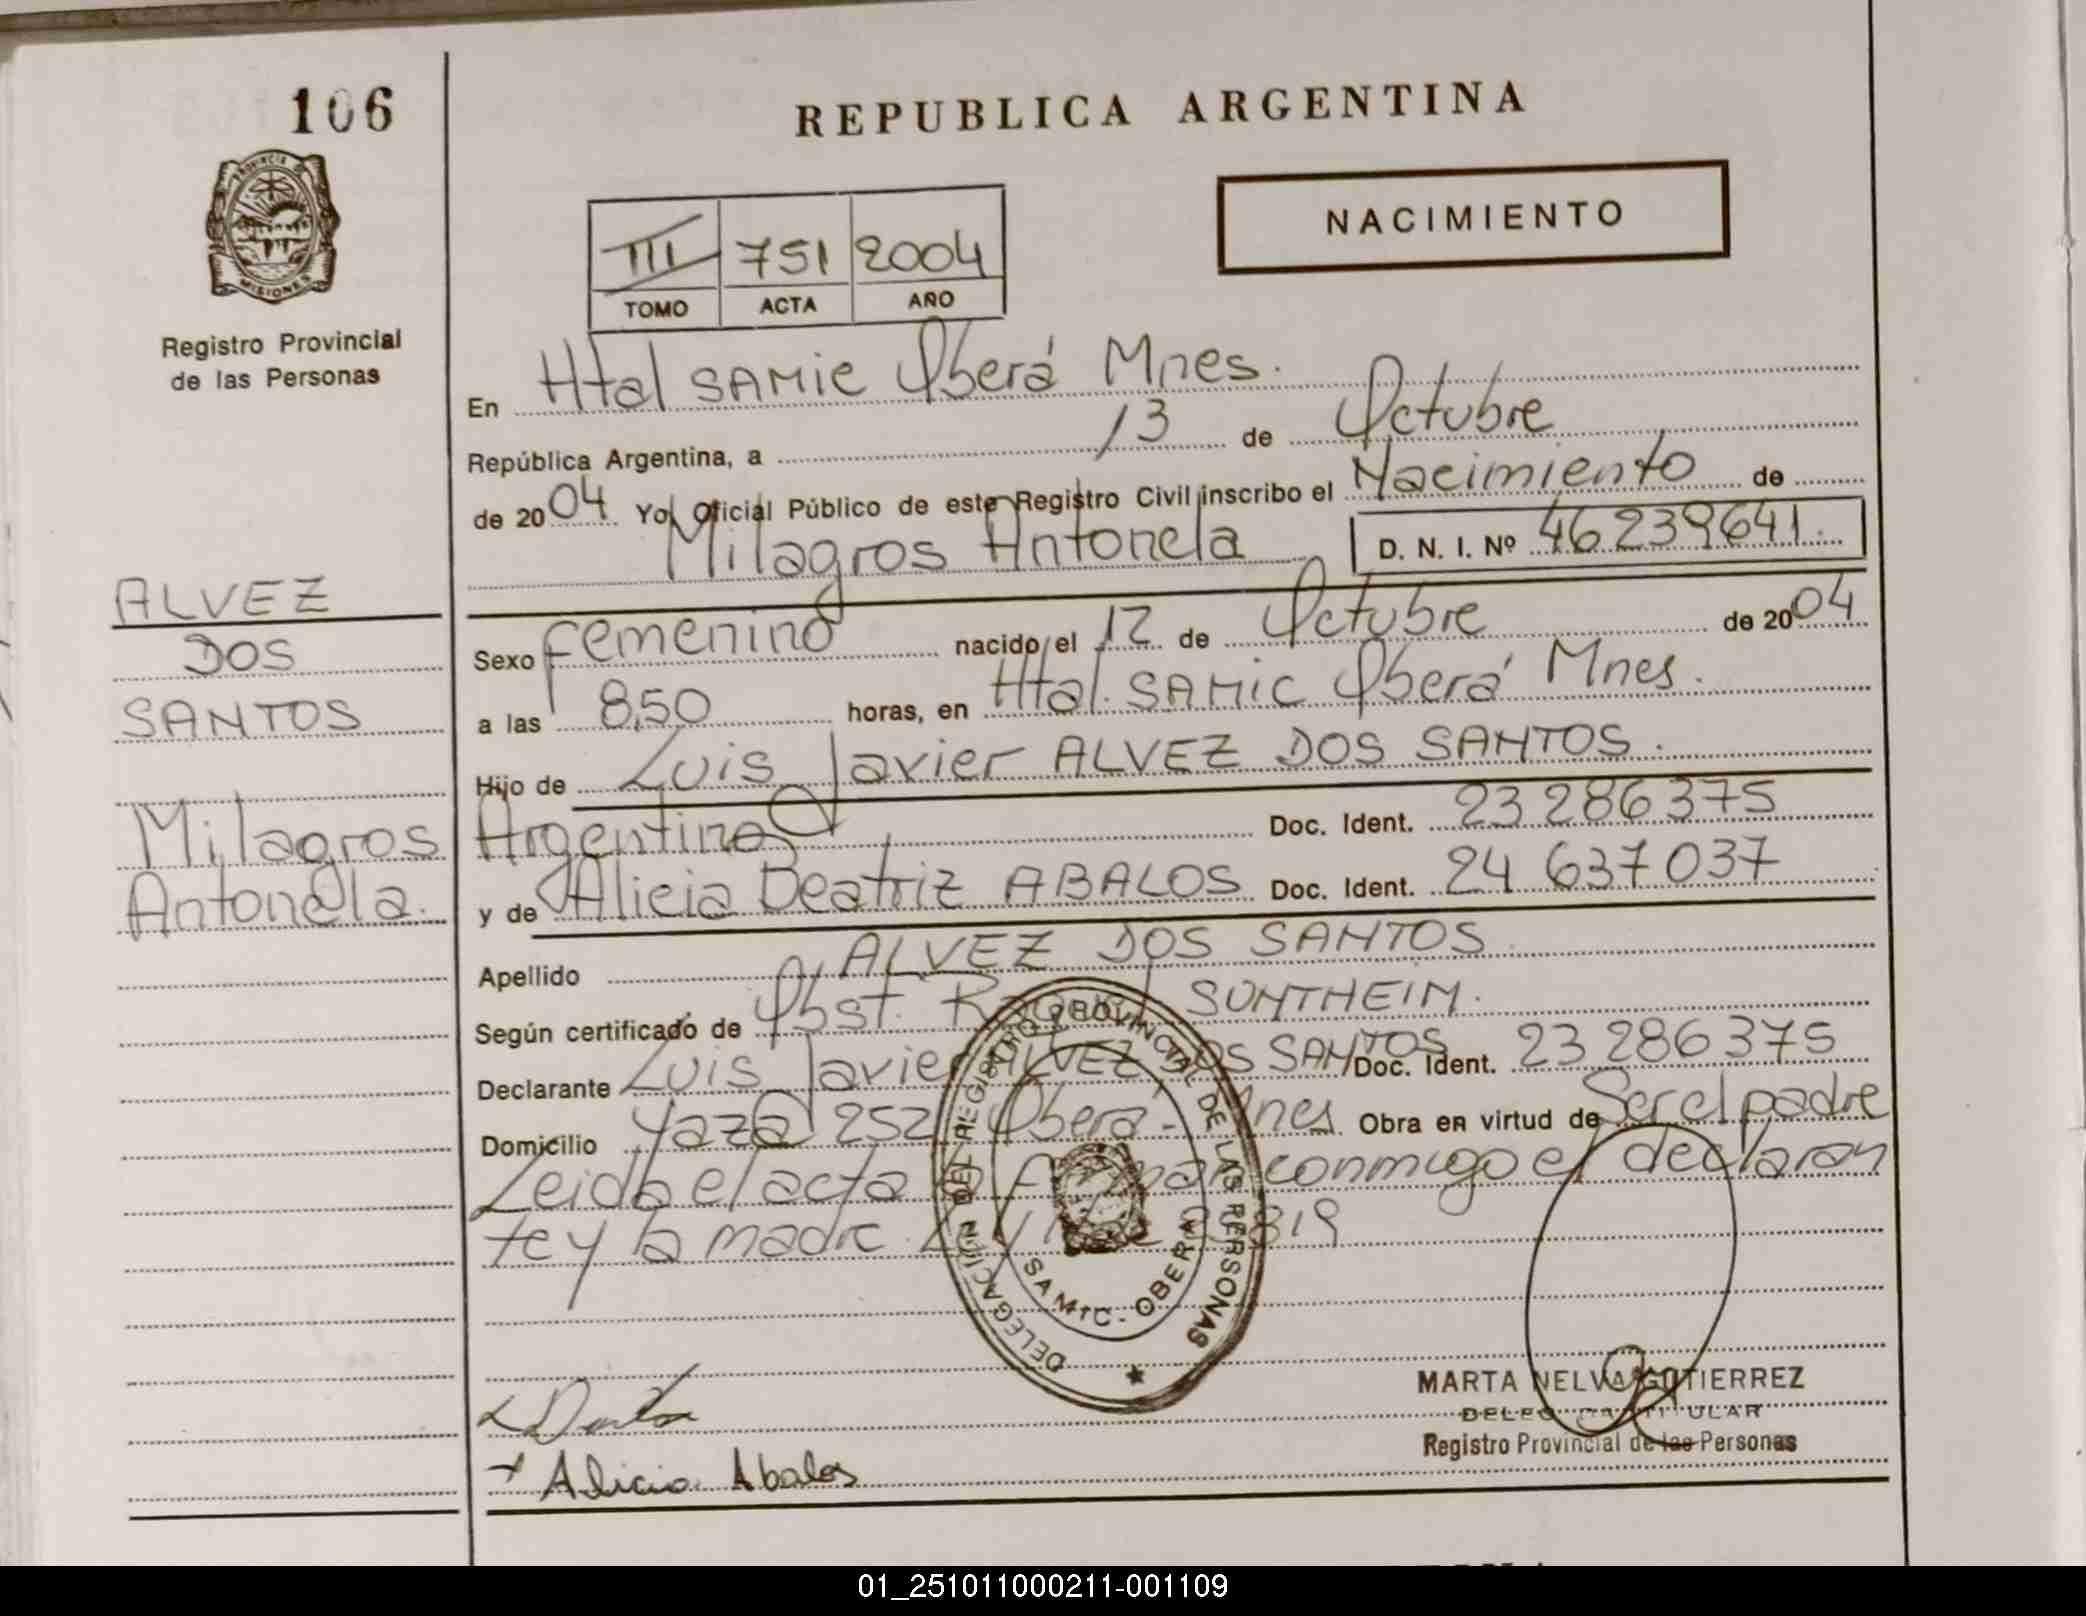 106
REPUBLICA ARGENTINA
NACIMIENTO
PROVINCIA DE
MISIONES
Registro Provincial
de las Personas
III 751 2004
TOMO ACTA AÑO
En Htal SAMIC Oberá Mnes.
República Argentina, a 13 de Octubre
de 2004 Yo, Oficial Público de este Registro Civil inscribo el Nacimiento de
Milagros Antonela D. N. I. Nº 46239641.
ALVEZ
DOS
SANTOS
Milagros
Antonela.
Sexo Femenino nacido el 12 de Octubre de 2004
a las 8,50 horas, en Htal. SAMIC Oberá Mnes.
Hijo de Luis Javier ALVEZ DOS SANTOS.
Argentino Doc. Ident. 23 286375
y de Alicia Beatriz ABALOS Doc. Ident. 24 637037
Apellido ALVEZ DOS SANTOS
Según certificado de Obst. Raquel SUNTHEIM.
Declarante Luis Javier ALVEZ DOS SANTOS Doc. Ident. 23 286375
Domicilio Yazá 252 Oberá - Mnes Obra en virtud de Ser el padre
Leida el acta la firman conmigo el declaran
te y la madre. Ley
DELEGACION DEL REGISTRO PROVINCIAL DE LAS PERSONAS
SAMIC - OBERA
MARTA NELVA GUTIERREZ
DELEGADA TITULAR
Registro Provincial de las Personas
Alicia Abalos
01_251011000211-001109